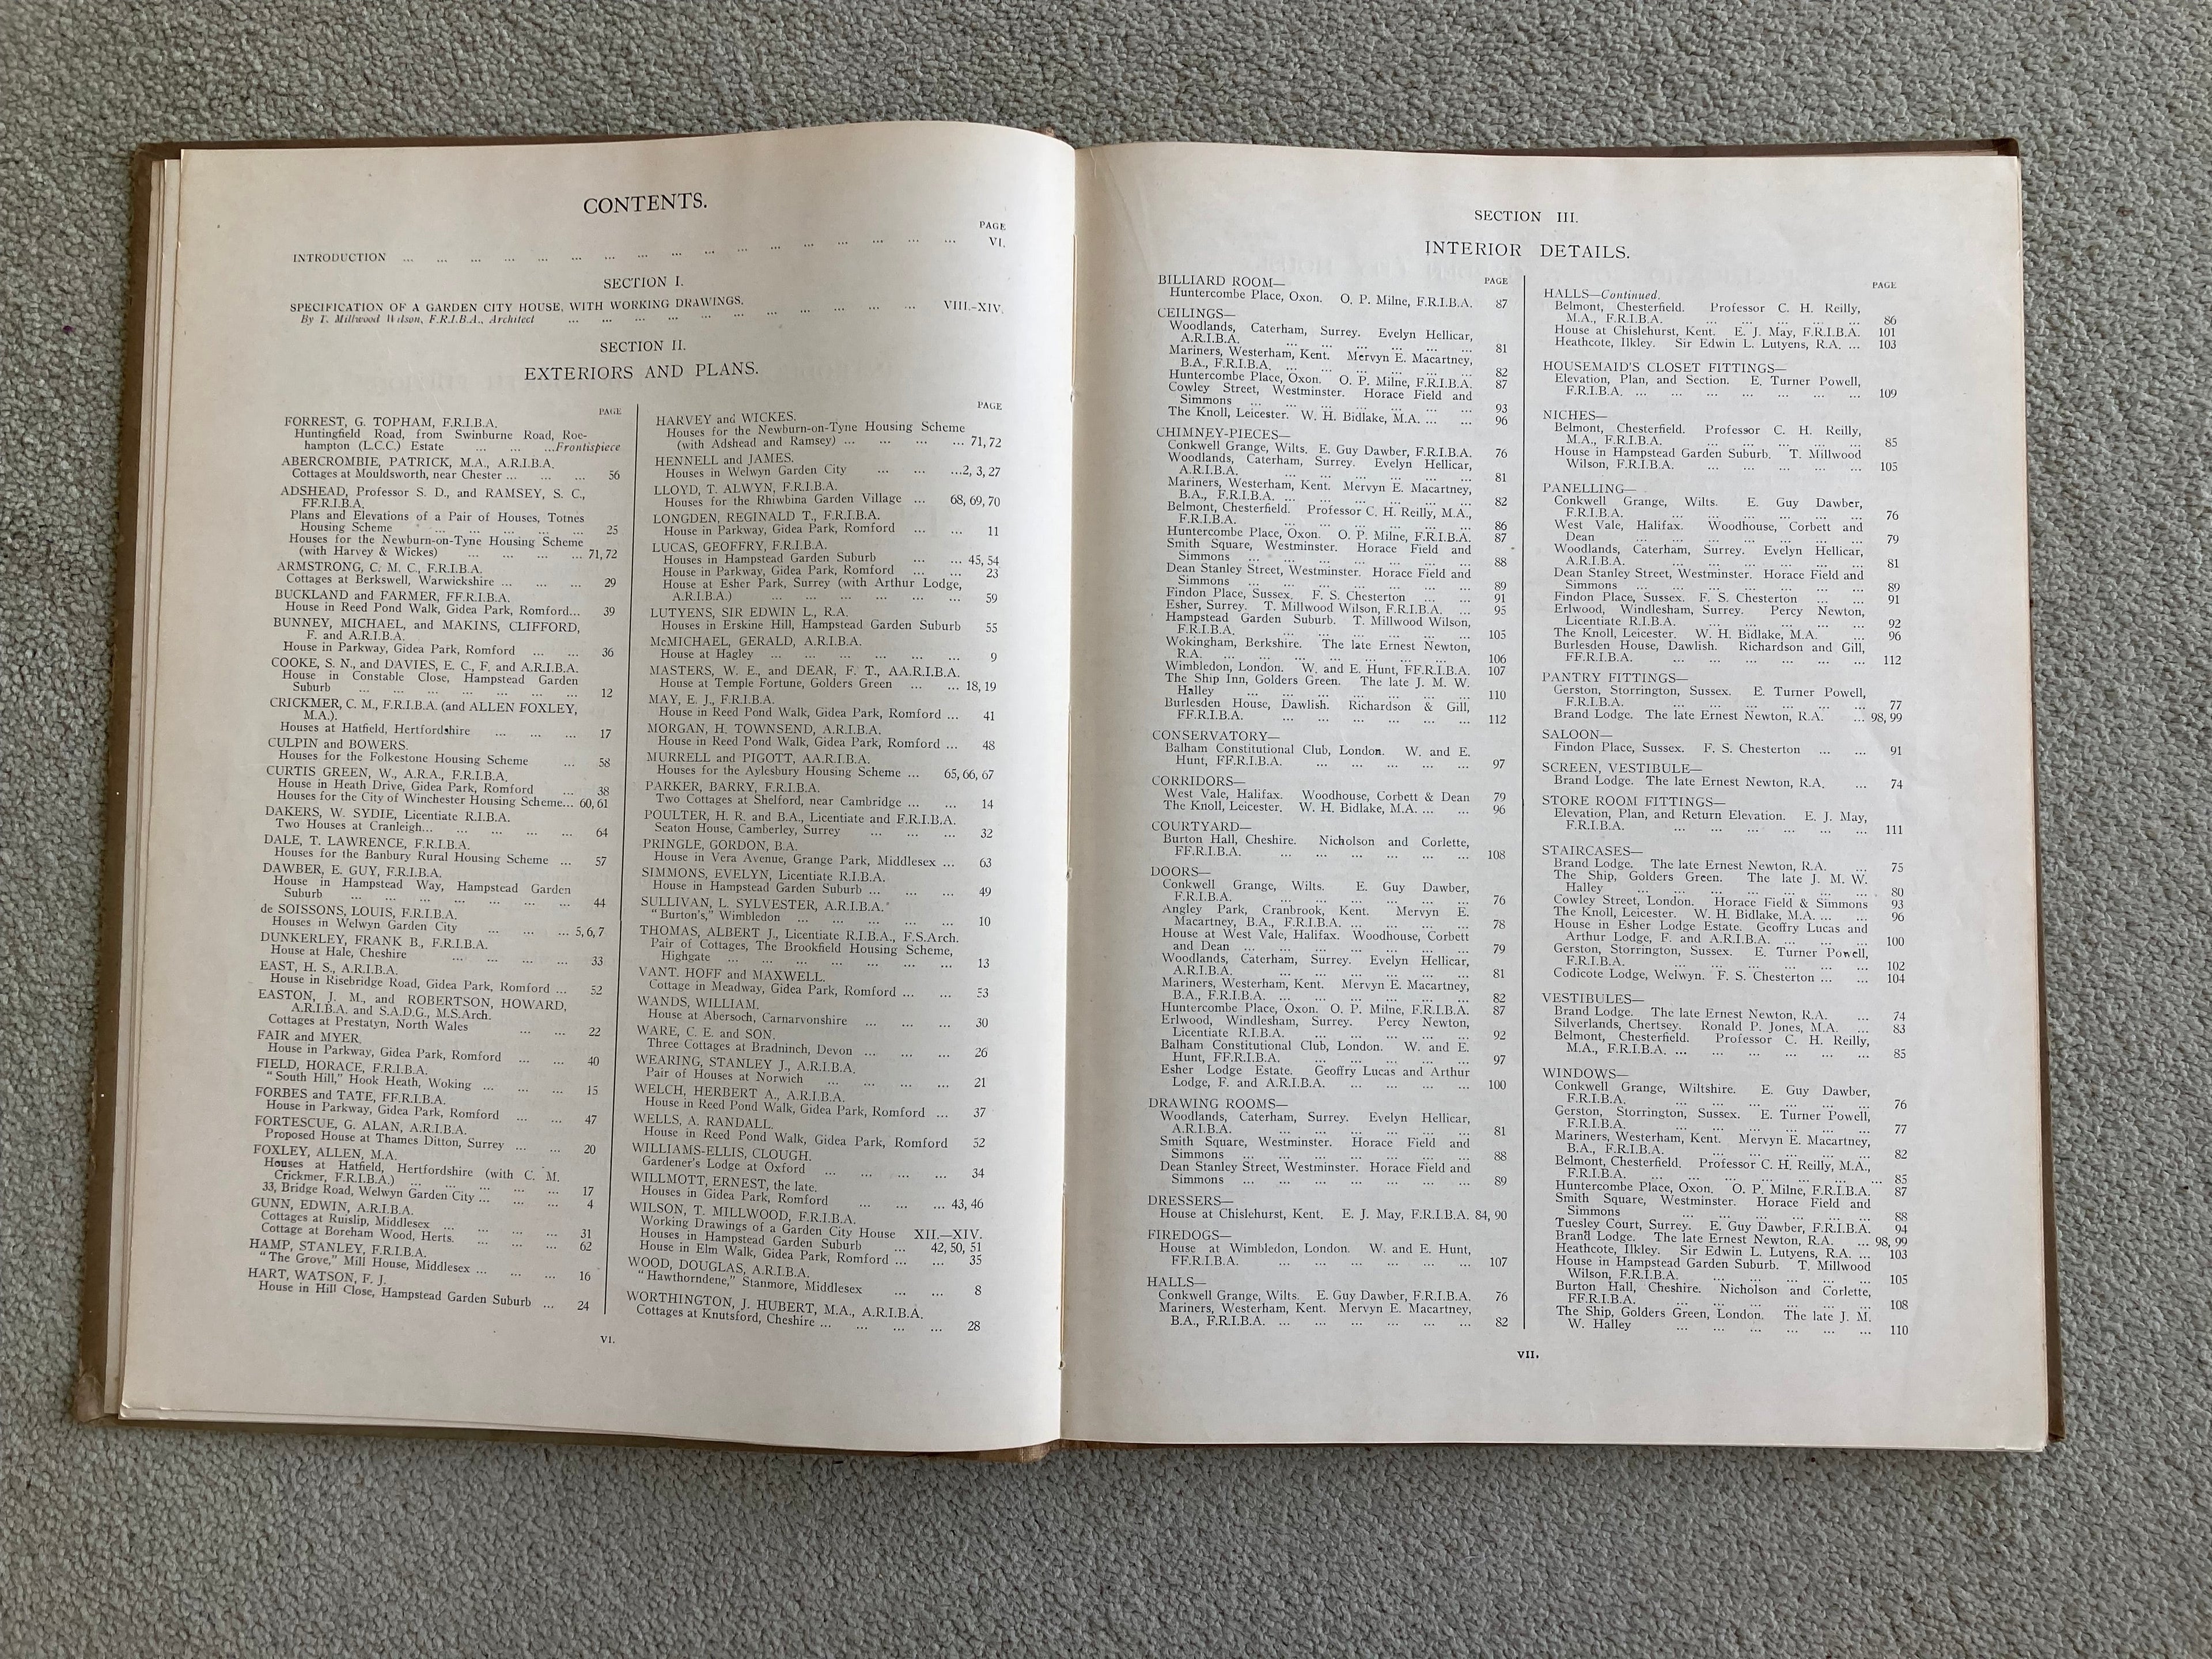 CONTENTS.
PAGE
INTRODUCTION ... ... ... ... ... ... ... ... ... ... ... ... ... ... ... ... ... VI.
SECTION I.
SPECIFICATION OF A GARDEN CITY HOUSE, WITH WORKING DRAWINGS.
By T. Millwood Wilson, F.R.I.B.A., Architect ... ... ... ... ... ... ... ... ... ... ... VIII.-XIV.
SECTION II.
EXTERIORS AND PLANS.
PAGE
FORREST, G. TOPHAM, F.R.I.B.A.
Huntingfield Road, from Swinburne Road, Roe-
hampton (L.C.C.) Estate ... ... ...Frontispiece
ABERCROMBIE, PATRICK, M.A., A.R.I.B.A.
Cottages at Mouldsworth, near Chester ... ... ... 56
ADSHEAD, Professor S. D., and RAMSEY, S. C.,
FF.R.I.B.A.
Plans and Elevations of a Pair of Houses, Totnes
Housing Scheme ... ... ... ... ... 25
Houses for the Newburn-on-Tyne Housing Scheme
(with Harvey & Wickes) ... ... ... ... 71, 72
ARMSTRONG, C. M. C., F.R.I.B.A.
Cottages at Berkswell, Warwickshire ... ... ... 29
BUCKLAND and FARMER, FF.R.I.B.A.
House in Reed Pond Walk, Gidea Park, Romford... 39
BUNNEY, MICHAEL, and MAKINS, CLIFFORD,
F. and A.R.I.B.A.
House in Parkway, Gidea Park, Romford ... ... 36
COOKE, S. N., and DAVIES, E. C., F. and A.R.I.B.A.
House in Constable Close, Hampstead Garden
Suburb ... ... ... ... ... ... ... 12
CRICKMER, C. M., F.R.I.B.A. (and ALLEN FOXLEY,
M.A.).
Houses at Hatfield, Hertfordshire ... ... ... 17
CULPIN and BOWERS.
Houses for the Folkestone Housing Scheme ... 58
CURTIS GREEN, W., A.R.A., F.R.I.B.A.
House in Heath Drive, Gidea Park, Romford ... 38
Houses for the City of Winchester Housing Scheme... 60, 61
DAKERS, W. SYDIE, Licentiate R.I.B.A.
Two Houses at Cranleigh... ... ... ... ... 64
DALE, T. LAWRENCE, F.R.I.B.A.
Houses for the Banbury Rural Housing Scheme ... 57
DAWBER, E. GUY, F.R.I.B.A.
House in Hampstead Way, Hampstead Garden
Suburb ... ... ... ... ... ... ... 44
de SOISSONS, LOUIS, F.R.I.B.A.
Houses in Welwyn Garden City ... ... ... ... 5, 6, 7
DUNKERLEY, FRANK B., F.R.I.B.A.
House at Hale, Cheshire ... ... ... ... 33
EAST, H. S., A.R.I.B.A.
House in Risebridge Road, Gidea Park, Romford ... 52
EASTON, J. M., and ROBERTSON, HOWARD,
A.R.I.B.A. and S.A.D.G., M.S.Arch.
Cottages at Prestatyn, North Wales ... ... 22
FAIR and MYER.
House in Parkway, Gidea Park, Romford ... ... 40
FIELD, HORACE, F.R.I.B.A.
"South Hill," Hook Heath, Woking ... ... ... 15
FORBES and TATE, FF.R.I.B.A.
House in Parkway, Gidea Park, Romford ... ... 47
FORTESCUE, G. ALAN, A.R.I.B.A.
Proposed House at Thames Ditton, Surrey ... ... 20
FOXLEY, ALLEN, M.A.
Houses at Hatfield, Hertfordshire (with C. M.
Crickmer, F.R.I.B.A.) ... ... ... ... ... 17
33, Bridge Road, Welwyn Garden City ... ... ... 4
GUNN, EDWIN, A.R.I.B.A.
Cottages at Ruislip, Middlesex ... ... ... ... 31
Cottage at Boreham Wood, Herts. ... ... ... 62
HAMP, STANLEY, F.R.I.B.A.
"The Grove," Mill House, Middlesex ... ... ... 16
HART, WATSON, F. J.
House in Hill Close, Hampstead Garden Suburb ... 24
PAGE
HARVEY and WICKES.
Houses for the Newburn-on-Tyne Housing Scheme
(with Adshead and Ramsey) ... ... ... ... 71, 72
HENNELL and JAMES.
Houses in Welwyn Garden City ... ... ...2, 3, 27
LLOYD, T. ALWYN, F.R.I.B.A.
Houses for the Rhiwbina Garden Village ... 68, 69, 70
LONGDEN, REGINALD T., F.R.I.B.A.
House in Parkway, Gidea Park, Romford ... ... 11
LUCAS, GEOFFRY, F.R.I.B.A.
Houses in Hampstead Garden Suburb ... ... 45, 54
House in Parkway, Gidea Park, Romford ... ... 23
House at Esher Park, Surrey (with Arthur Lodge,
A.R.I.B.A.) ... ... ... ... ... ... 59
LUTYENS, SIR EDWIN L., R.A.
Houses in Erskine Hill, Hampstead Garden Suburb 55
McMICHAEL, GERALD, A.R.I.B.A.
House at Hagley ... ... ... ... ... ... 9
MASTERS, W. E., and DEAR, F. T., AA.R.I.B.A.
House at Temple Fortune, Golders Green ... ... 18, 19
MAY, E. J., F.R.I.B.A.
House in Reed Pond Walk, Gidea Park, Romford ... 41
MORGAN, H. TOWNSEND, A.R.I.B.A.
House in Reed Pond Walk, Gidea Park, Romford ... 48
MURRELL and PIGOTT, AA.R.I.B.A.
Houses for the Aylesbury Housing Scheme ... 65, 66, 67
PARKER, BARRY, F.R.I.B.A.
Two Cottages at Shelford, near Cambridge ... ... 14
POULTER, H. R. and B.A., Licentiate and F.R.I.B.A.
Seaton House, Camberley, Surrey ... ... ... 32
PRINGLE, GORDON, B.A.
House in Vera Avenue, Grange Park, Middlesex ... 63
SIMMONS, EVELYN, Licentiate R.I.B.A.
House in Hampstead Garden Suburb ... ... ... 49
SULLIVAN, L. SYLVESTER, A.R.I.B.A.
"Burton's," Wimbledon ... ... ... ... ... 10
THOMAS, ALBERT J., Licentiate R.I.B.A., F.S.Arch.
Pair of Cottages, The Brookfield Housing Scheme,
Highgate ... ... ... ... ... ... ... 13
VANT. HOFF and MAXWELL.
Cottage in Meadway, Gidea Park, Romford ... ... 53
WANDS, WILLIAM.
House at Abersoch, Carnarvonshire ... ... ... 30
WARE, C. E. and SON.
Three Cottages at Bradninch, Devon ... ... ... 26
WEARING, STANLEY J., A.R.I.B.A.
Pair of Houses at Norwich ... ... ... ... 21
WELCH, HERBERT A., A.R.I.B.A.
House in Reed Pond Walk, Gidea Park, Romford ... 37
WELLS, A. RANDALL.
House in Reed Pond Walk, Gidea Park, Romford 52
WILLIAMS-ELLIS, CLOUGH.
Gardener's Lodge at Oxford ... ... ... ... 34
WILLMOTT, ERNEST, the late.
Houses in Gidea Park, Romford ... ... ... 43, 46
WILSON, T. MILLWOOD, F.R.I.B.A.
Working Drawings of a Garden City House XII.—XIV.
Houses in Hampstead Garden Suburb ... 42, 50, 51
House in Elm Walk, Gidea Park, Romford ... ... 35
WOOD, DOUGLAS, A.R.I.B.A.
"Hawthorndene," Stanmore, Middlesex ... ... 8
WORTHINGTON, J. HUBERT, M.A., A.R.I.B.A.
Cottages at Knutsford, Cheshire ... ... ... ... 28
VI.
SECTION III.
INTERIOR DETAILS.
PAGE
BILLIARD ROOM—
Huntercombe Place, Oxon. O. P. Milne, F.R.I.B.A. 87
CEILINGS—
Woodlands, Caterham, Surrey. Evelyn Hellicar,
A.R.I.B.A. ... ... ... ... ... ... 81
Mariners, Westerham, Kent. Mervyn E. Macartney,
B.A., F.R.I.B.A. ... ... ... ... ... ... 82
Huntercombe Place, Oxon. O. P. Milne, F.R.I.B.A. 87
Cowley Street, Westminster. Horace Field and
Simmons ... ... ... ... ... ... ... 93
The Knoll, Leicester. W. H. Bidlake, M.A. ... ... 96
CHIMNEY-PIECES—
Conkwell Grange, Wilts. E. Guy Dawber, F.R.I.B.A. 76
Woodlands, Caterham, Surrey. Evelyn Hellicar,
A.R.I.B.A. ... ... ... ... ... ... 81
Mariners, Westerham, Kent. Mervyn E. Macartney,
B.A., F.R.I.B.A. ... ... ... ... ... ... 82
Belmont, Chesterfield. Professor C. H. Reilly, M.A.,
F.R.I.B.A. ... ... ... ... ... ... 86
Huntercombe Place, Oxon. O. P. Milne, F.R.I.B.A. 87
Smith Square, Westminster. Horace Field and
Simmons ... ... ... ... ... ... ... 88
Dean Stanley Street, Westminster. Horace Field and
Simmons ... ... ... ... ... ... ... 89
Findon Place, Sussex. F. S. Chesterton ... ... 91
Esher, Surrey. T. Millwood Wilson, F.R.I.B.A. ... 95
Hampstead Garden Suburb. T. Millwood Wilson,
F.R.I.B.A. ... ... ... ... ... ... 105
Wokingham, Berkshire. The late Ernest Newton,
R.A. ... ... ... ... ... ... ... 106
Wimbledon, London. W. and E. Hunt, FF.R.I.B.A. 107
The Ship Inn, Golders Green. The late J. M. W.
Halley ... ... ... ... ... ... ... 110
Burlesden House, Dawlish. Richardson & Gill,
FF.R.I.B.A. ... ... ... ... ... ... 112
CONSERVATORY—
Balham Constitutional Club, London. W. and E.
Hunt, FF.R.I.B.A. ... ... ... ... ... 97
CORRIDORS—
West Vale, Halifax. Woodhouse, Corbett & Dean 79
The Knoll, Leicester. W. H. Bidlake, M.A. ... ... 96
COURTYARD—
Burton Hall, Cheshire. Nicholson and Corlette,
FF.R.I.B.A. ... ... ... ... ... ... 108
DOORS—
Conkwell Grange, Wilts. E. Guy Dawber,
F.R.I.B.A. ... ... ... ... ... ... 76
Angley Park, Cranbrook, Kent. Mervyn E.
Macartney, B.A., F.R.I.B.A. ... ... ... ... 78
House at West Vale, Halifax. Woodhouse, Corbett
and Dean ... ... ... ... ... ... ... 79
Woodlands, Caterham, Surrey. Evelyn Hellicar,
A.R.I.B.A. ... ... ... ... ... ... 81
Mariners, Westerham, Kent. Mervyn E. Macartney,
B.A., F.R.I.B.A. ... ... ... ... ... ... 82
Huntercombe Place, Oxon. O. P. Milne, F.R.I.B.A. 87
Erlwood, Windlesham, Surrey. Percy Newton,
Licentiate R.I.B.A. ... ... ... ... ... 92
Balham Constitutional Club, London. W. and E.
Hunt, FF.R.I.B.A. ... ... ... ... ... 97
Esher Lodge Estate. Geoffry Lucas and Arthur
Lodge, F. and A.R.I.B.A. ... ... ... ... 100
DRAWING ROOMS—
Woodlands, Caterham, Surrey. Evelyn Hellicar,
A.R.I.B.A. ... ... ... ... ... ... 81
Smith Square, Westminster. Horace Field and
Simmons ... ... ... ... ... ... ... 88
Dean Stanley Street, Westminster. Horace Field and
Simmons ... ... ... ... ... ... ... 89
DRESSERS—
House at Chislehurst, Kent. E. J. May, F.R.I.B.A. 84, 90
FIREDOGS—
House at Wimbledon, London. W. and E. Hunt,
FF.R.I.B.A. ... ... ... ... ... ... 107
HALLS—
Conkwell Grange, Wilts. E. Guy Dawber, F.R.I.B.A. 76
Mariners, Westerham, Kent. Mervyn E. Macartney,
B.A., F.R.I.B.A. ... ... ... ... ... ... 82
PAGE
HALLS—Continued.
Belmont, Chesterfield. Professor C. H. Reilly,
M.A., F.R.I.B.A. ... ... ... ... ... 86
House at Chislehurst, Kent. E. J. May, F.R.I.B.A. 101
Heathcote, Ilkley. Sir Edwin L. Lutyens, R.A. ... 103
HOUSEMAID'S CLOSET FITTINGS—
Elevation, Plan, and Section. E. Turner Powell,
F.R.I.B.A. ... ... ... ... ... ... ... 109
NICHES—
Belmont, Chesterfield. Professor C. H. Reilly,
M.A., F.R.I.B.A. ... ... ... ... ... 85
House in Hampstead Garden Suburb. T. Millwood
Wilson, F.R.I.B.A. ... ... ... ... ... 105
PANELLING—
Conkwell Grange, Wilts. E. Guy Dawber,
F.R.I.B.A. ... ... ... ... ... ... 76
West Vale, Halifax. Woodhouse, Corbett and
Dean ... ... ... ... ... ... ... 79
Woodlands, Caterham, Surrey. Evelyn Hellicar,
A.R.I.B.A. ... ... ... ... ... ... 81
Dean Stanley Street, Westminster. Horace Field and
Simmons ... ... ... ... ... ... ... 89
Findon Place, Sussex. F. S. Chesterton ... ... 91
Erlwood, Windlesham, Surrey. Percy Newton,
Licentiate R.I.B.A. ... ... ... ... ... 92
The Knoll, Leicester. W. H. Bidlake, M.A. ... 96
Burlesden House, Dawlish. Richardson and Gill,
FF.R.I.B.A. ... ... ... ... ... ... 112
PANTRY FITTINGS—
Gerston, Storrington, Sussex. E. Turner Powell,
F.R.I.B.A. ... ... ... ... ... ... 77
Brand Lodge. The late Ernest Newton, R.A. ... 98, 99
SALOON—
Findon Place, Sussex. F. S. Chesterton ... ... 91
SCREEN, VESTIBULE—
Brand Lodge. The late Ernest Newton, R.A. ... 74
STORE ROOM FITTINGS—
Elevation, Plan, and Return Elevation. E. J. May,
F.R.I.B.A. ... ... ... ... ... ... 111
STAIRCASES—
Brand Lodge. The late Ernest Newton, R.A. ... 75
The Ship, Golders Green. The late J. M. W.
Halley ... ... ... ... ... ... ... 80
Cowley Street, London. Horace Field & Simmons 93
The Knoll, Leicester. W. H. Bidlake, M.A. ... ... 96
House in Esher Lodge Estate. Geoffry Lucas and
Arthur Lodge, F. and A.R.I.B.A. ... ... ... 100
Gerston, Storrington, Sussex. E. Turner Powell,
F.R.I.B.A. ... ... ... ... ... ... 102
Codicote Lodge, Welwyn. F. S. Chesterton ... ... 104
VESTIBULES—
Brand Lodge. The late Ernest Newton, R.A. ... 74
Silverlands, Chertsey. Ronald P. Jones, M.A. ... 83
Belmont, Chesterfield. Professor C. H. Reilly,
M.A., F.R.I.B.A. ... ... ... ... ... ... 85
WINDOWS—
Conkwell Grange, Wiltshire. E. Guy Dawber,
F.R.I.B.A. ... ... ... ... ... ... 76
Gerston, Storrington, Sussex. E. Turner Powell,
F.R.I.B.A. ... ... ... ... ... ... 77
Mariners, Westerham, Kent. Mervyn E. Macartney,
B.A., F.R.I.B.A. ... ... ... ... ... ... 82
Belmont, Chesterfield. Professor C. H. Reilly, M.A.,
F.R.I.B.A. ... ... ... ... ... ... ... 85
Huntercombe Place, Oxon. O. P. Milne, F.R.I.B.A. 87
Smith Square, Westminster. Horace Field and
Simmons ... ... ... ... ... ... ... 88
Tuesley Court, Surrey. E. Guy Dawber, F.R.I.B.A. 94
Brand Lodge. The late Ernest Newton, R.A. ... 98, 99
Heathcote, Ilkley. Sir Edwin L. Lutyens, R.A. ... 103
House in Hampstead Garden Suburb. T. Millwood
Wilson, F.R.I.B.A. ... ... ... ... ... 105
Burton Hall, Cheshire. Nicholson and Corlette,
FF.R.I.B.A. ... ... ... ... ... ... 108
The Ship, Golders Green, London. The late J. M.
W. Halley ... ... ... ... ... ... 110
VII.